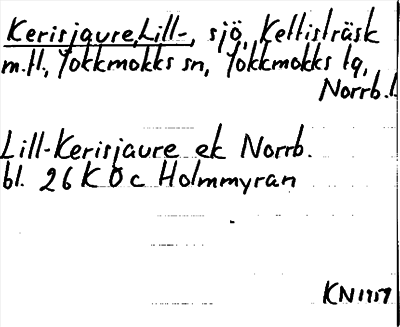 Kerisjaure, Lill-, sjö, Kellisträsk
m.fl., Jokkmokks sn, Jokkmokks lq,
Norrb.l.
Lill-Kerisjaure ek Norrb.
bl. 26 K 0 c Holmmyran
KN 1959